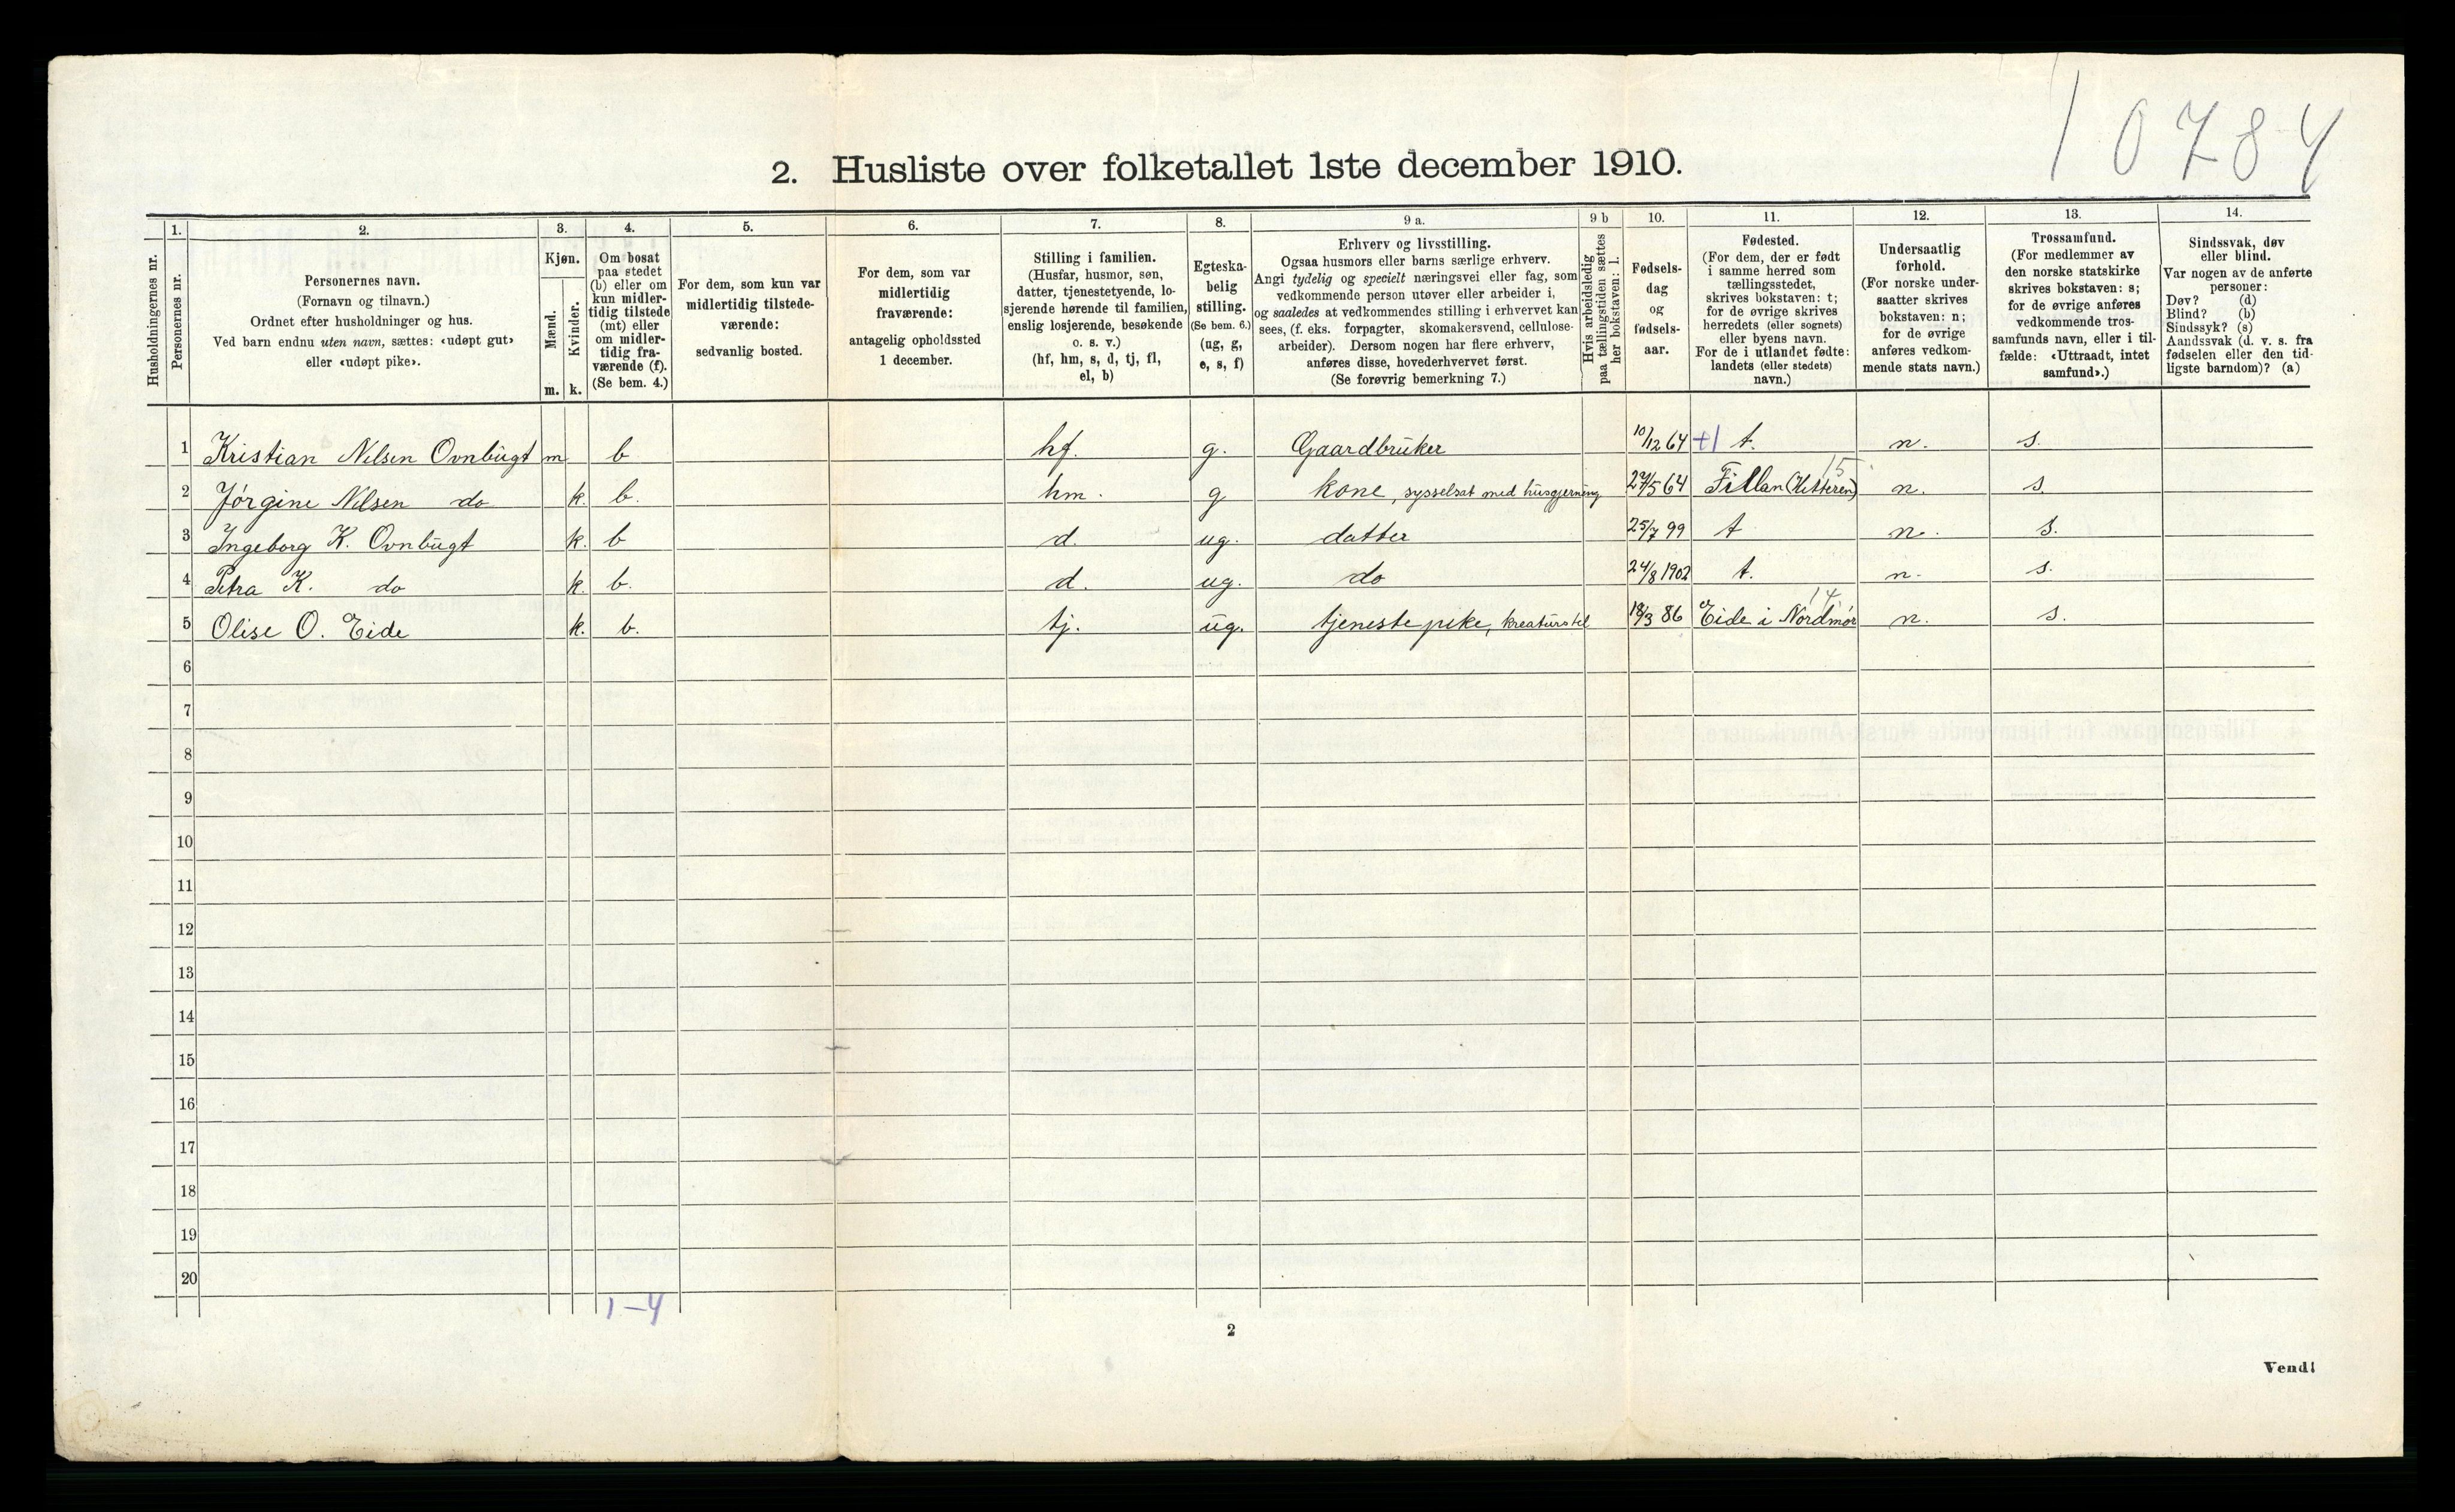 10784
2. Husliste over folketallet 1ste december 1910.
Husholdningernes nr.
1.
Personernes nr.
2.
Personernes navn.
(Fornavn og tilnavn.)
Ordnet efter husholdninger og hus.
Ved barn endnu uten navn, sættes: «udøpt gut»
eller «udøpt pike».
3.
Kjøn.
Mænd.
m.
Kvinder.
k.
4.
Om bosat
paa stedet
(b) eller om
kun midler-
tidig tilstede
(mt) eller
om midler-
tidig fra-
værende (f).
(Se bem. 4.)
5.
For dem, som kun var
midlertidig tilstede-
værende:
sedvanlig bosted.
6.
For dem, som var
midlertidig
fraværende:
antagelig opholdssted
1 december.
7.
Stilling i familien.
(Husfar, husmor, søn,
datter, tjenestetyende, lo-
sjerende hørende til familien,
enslig losjerende, besøkende
o. s. v.)
(hf, hm, s, d, tj, fl,
el, b)
8.
Egteska-
belig
stilling.
(Se bem. 6.)
(ug, g,
e, s, f)
9 a.
Erhverv og livsstilling.
Ogsaa husmors eller barns særlige erhverv.
Angi tydelig og specielt næringsvei eller fag, som
vedkommende person utøver eller arbeider i,
og saaledes at vedkommendes stilling i erhvervet kan
sees, (f. eks. forpagter, skomakersvend, cellulose-
arbeider). Dersom nogen har flere erhverv,
anføres disse, hovederhvervet først.
(Se forøvrig bemerkning 7.)
9 b
Hvis arbeidsledig
paa tællingstiden sættes
her bokstaven: l.
10.
Fødsels-
dag
og
fødsels-
aar.
11.
Fødested.
(For dem, der er født
i samme herred som
tællingsstedet,
skrives bokstaven: t;
for de øvrige skrives
herredets (eller sognets)
eller byens navn.
For de i utlandet fødte:
landets (eller stedets)
navn.)
12.
Undersaatlig
forhold.
(For norske under-
saatter skrives
bokstaven: n;
for de øvrige
anføres vedkom-
mende stats navn.)
13.
Trossamfund.
(For medlemmer av
den norske statskirke
skrives bokstaven: s;
for de øvrige anføres
vedkommende tros-
samfunds navn, eller i til-
fælde: «Uttraadt, intet
samfund».)
14.
Sindssvak, døv
eller blind.
Var nogen av de anførte
personer:
Døv? (d)
Blind? (b)
Sindssyk? (s)
Aandssvak (d. v. s. fra
fødselen eller den tid-
ligste barndom)? (a)
1 Kristian Nilsen Ovnbugt m b hf. g. Gaardbruker 10/12 64 +1 t. n. s.
15
2 Jørgine Nilsen do k. b. hm. g kone, sysselsat med husgjerning 27/5 64 Fillan (Hitteren) n. s.
3 Ingeborg K. Ovnbugt k. b d. ug. datter 25/7 99 t n. s.
4 Petra K. do k. b. d. ug. do 24/8 1902 t. n. s.
14
5 Olise O. Eide k. b. tj. ug. tjenestepike, kreaturstel 18/3 86 Eide i Nordmør n. s.
6
7
8
9
10
11
12
13
14
15
16
17
18
19
20
1-4
2
Vend!